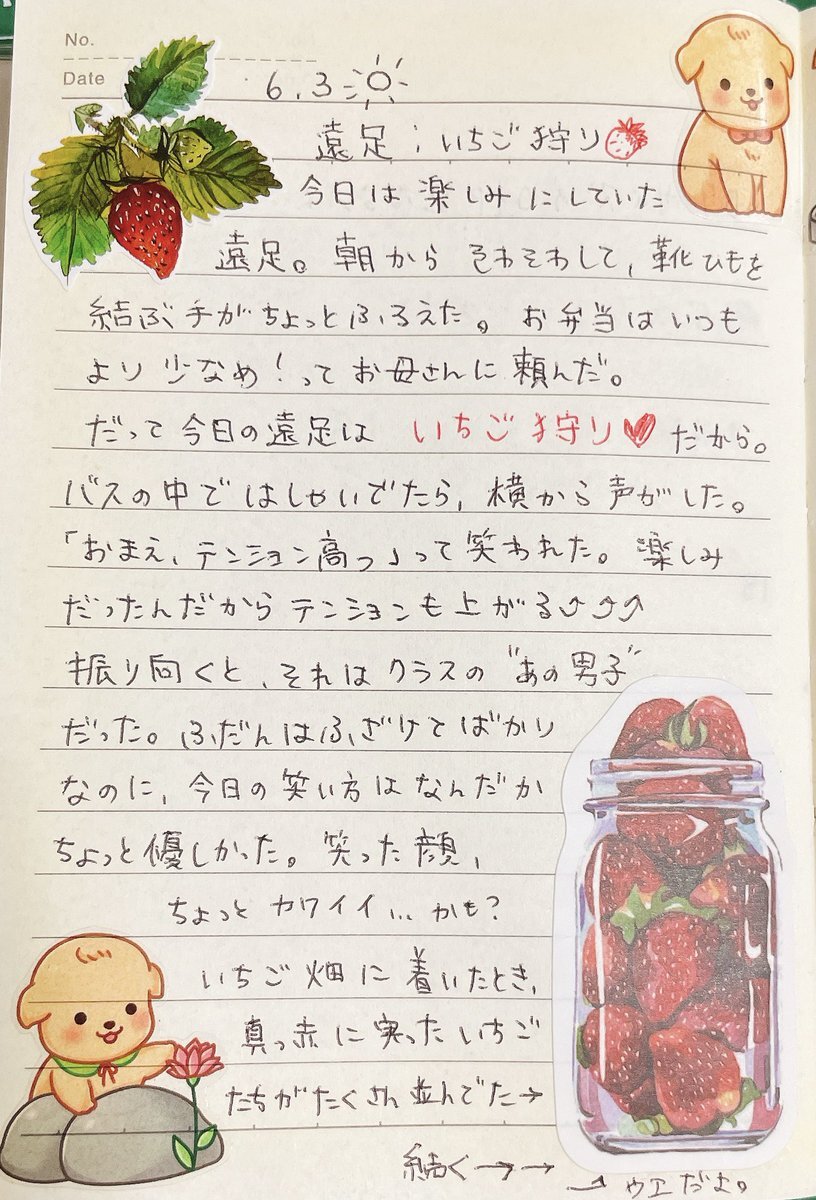 No.
Date 6.3
遠足：いちご狩り
今日は楽しみにしていた
遠足。朝からそわそわして、靴ひもを
結ぶ手がちょっとふるえた。お弁当はいつも
より少なめ！ってお母さんに頼んだ。
だって今日の遠足は いちご狩り♥だから。
バスの中ではしゃいでたら、横から声がした。
「おまえ、テンション高っ」って笑われた。楽しみ
だったんだからテンションも上がる⤴⤴⤴
振り向くと、それはクラスの"あの男子"
だった。ふだんはふざけてばかり
なのに、今日の笑い方はなんだか
ちょっと優しかった。笑った顔、
ちょっとカワイイ…かも？
いちご畑に着いたとき、
真っ赤に実ったいちご
たちがたくさん並んでた→
続く→→
だよ。